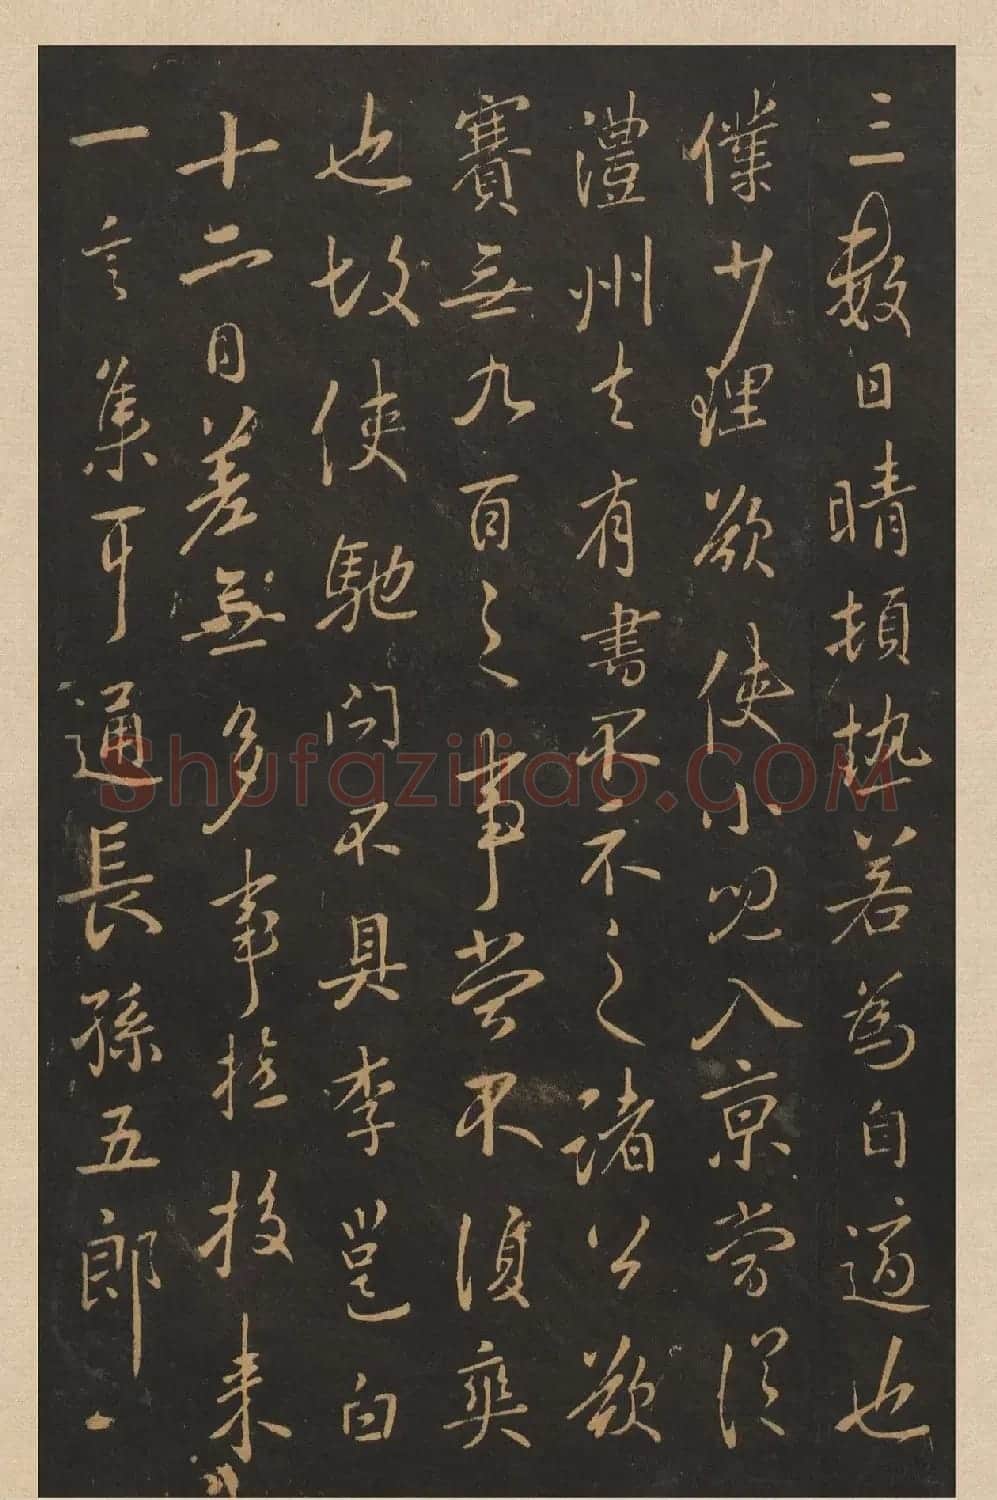 三數日晴頓熱若為自適也
僕少理欲使小兒入京當從
澧州去有書不不之諸公欲
賽無九百之事當不復爽
也故使馳問不具李邕白
十二日差無多事投來
一言集耳通長孫五郎
Shufaziliao.COM